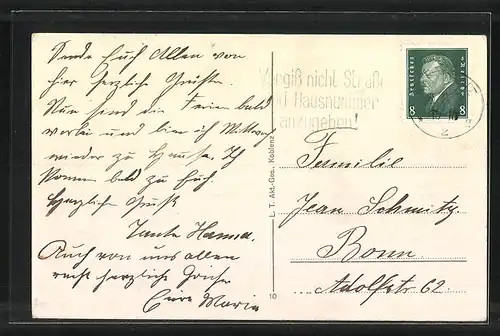 Sende Euch Allen von
hier herzliche Grüße.
Nun sind die Ferien bald
vorbei und bin ich Mittwoch
wieder zu Hause. Ich
komme bald zu Euch.
Herzlichen Gruß
Tante Hanna.
Auch von uns allen
recht herzliche Grüße
Eure Maria
L. T. Akt.-Ges. Koblenz
10
giß nicht Straße
d Hausnummer
anzugeben!
Deutsches Reich
8 8
Familie
Jean Schmitz
Bonn
Adolfstr. 62.